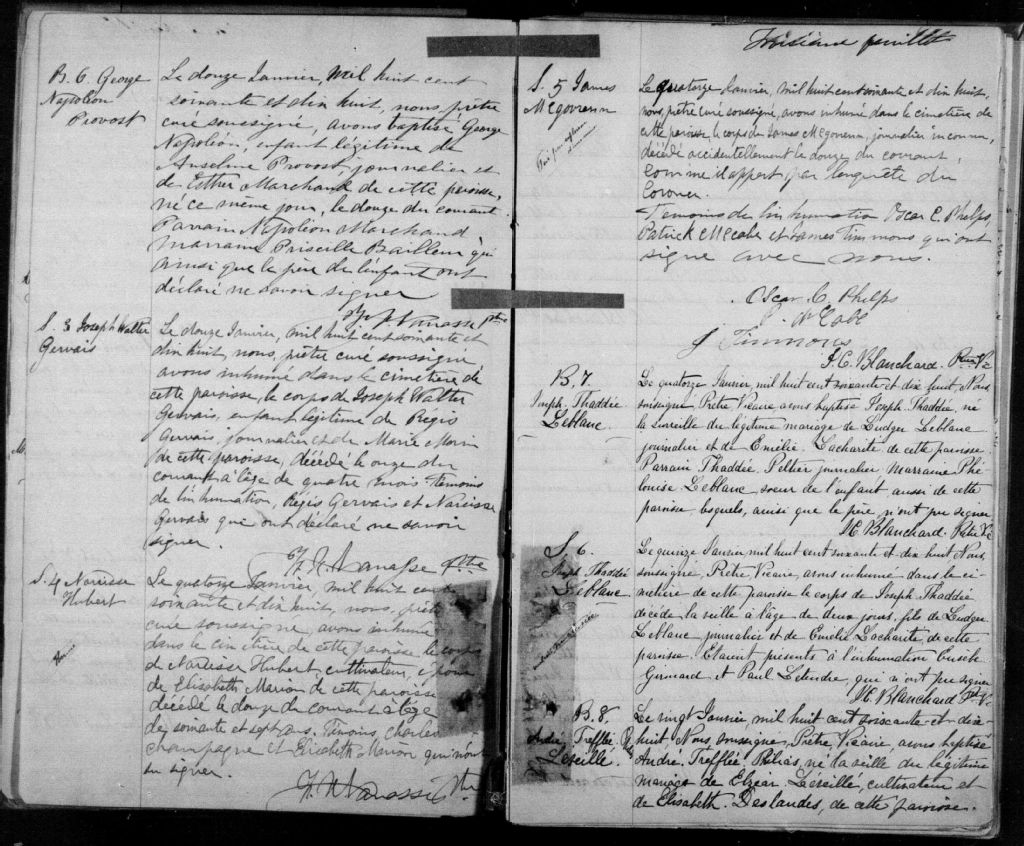 B. 6. George
Napoléon
Provost
Le douze Janvier, mil huit cent
soixante et dix huit, nous, prêtre
curé soussigné, avons baptisé George
Napoléon, enfant légitime de
Anselme Provost, journalier et
de Esther Marchand de cette paroisse,
né ce même jour, le douze du courant.
Parrain Napoléon Marchand
marraine Priscille Bailleur qui
ainsi que le père de l'enfant ont
déclaré ne savoir signer
Ptre
S. 3 Joseph Walter
Gervais
Le douze Janvier, mil huit cent soixante et
dix huit, nous, prêtre curé soussigné
avons inhumé dans le cimetière de
cette paroisse, le corps de Joseph Walter
Gervais, enfant légitime de Régis
Gervais, journalier et de Marie Morin
de cette paroisse, décédé le onze du
courant à l'âge de quatre mois. Témoins
de l'inhumation, Régis Gervais et Narcisse
Gervais qui ont déclaré ne savoir
signer.
Ptre
S. 4 Narcisse
Hubert
Le quatorze Janvier, mil huit cent
soixante et dix huit, nous, prêtre
curé soussigné, avons inhumé
dans le cimetière de cette paroisse le corps
de Narcisse Hubert, cultivateur, époux
de Elisabeth Marion de cette paroisse
décédé le douze du courant à l'âge
de soixante et sept ans. Témoins, Charles
Champagne et Elisabeth Marion qui n'ont
su signer.
Ptre
Troisième feuillet
S. 5 James
McGovern
Le quatorze Janvier, mil huit cent soixante et dix huit,
nous, prêtre curé soussigné, avons inhumé dans le cimetière de
cette paroisse le corps de James McGovern, journalier inconnu,
décédé accidentellement le douze du courant,
comme il appert par l'enquête du
Coroner.
Témoins de l'inhumation Oscar C. Phelps,
Patrick McCabe et James Timmons qui ont
signé avec nous.
Oscar C. Phelps
P. McCabe
J Timmons
Blanchard
B. 7.
Joseph. Thaddée
Leblanc
Le quatorze Janvier, mil huit cent soixante et dix huit Nous
soussigné Prêtre Vicaire avons baptisé Joseph. Thaddée, né
la surveille du légitime mariage de Ludger Leblanc
journalier et de Emélie. Lacharité de cette paroisse.
Parrain Thaddée. Peltier journalier Marraine Phé
louise Leblanc soeur de l'enfant aussi de cette
paroisse lesquels, ainsi que le père, n'ont pu signer
Blanchard. Ptre Vc
S. 6.
Joseph Thaddée
Leblanc
Le quinze Janvier, mil huit cent soixante et dix huit Nous,
soussigné, Prêtre Vicaire, avons inhumé dans le ci-
metière de cette paroisse le corps de Joseph Thaddée
décédé la veille à l'âge de deux jours, fils de Ludger
Leblanc journalier et de Emélie Lacharité de cette
paroisse. Etaient présents à l'inhumation
et Paul qui n'ont pu signer
Blanchard Ptre Vc
B. 8.
André Trefflée
Léseillé.
Le vingt Janvier, mil huit cent soixante-et-dix-
huit, Nous soussigné, Prêtre Vicaire, avons baptisé
André. Trefflée. Philias, né la veille du légitime
mariage de Elzéar. Léseillé, cultivateur et
de Elisabeth. Deslandes, de cette paroisse.